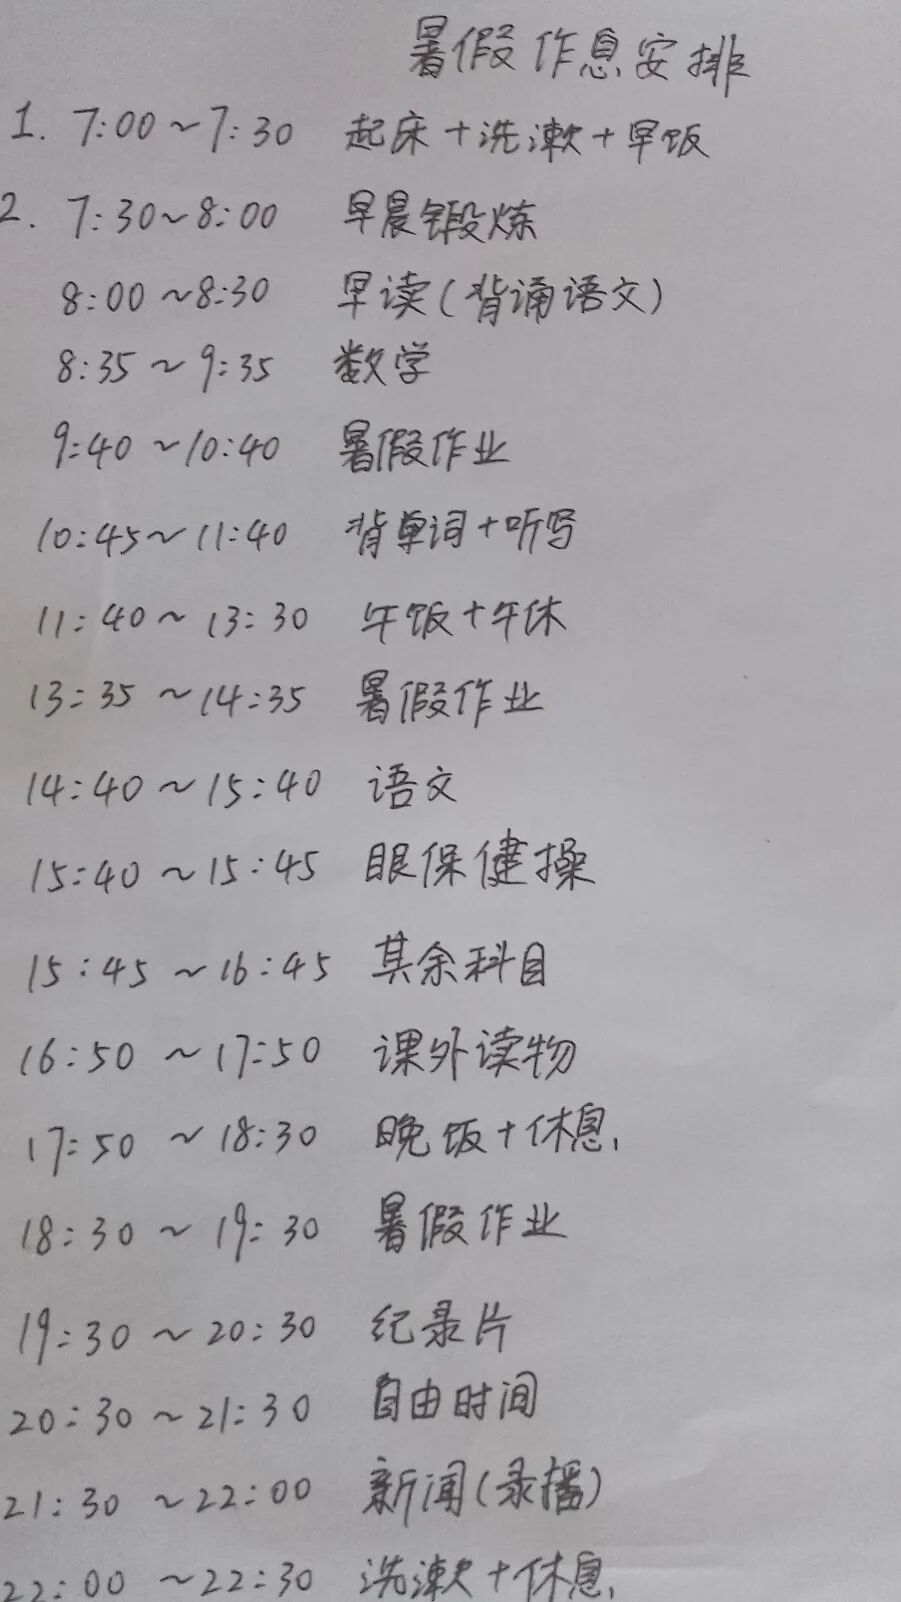 暑假作息安排
1. 7:00~7:30 起床+洗漱+早饭
2. 7:30~8:00 早晨锻炼
8:00~8:30 早读(背诵语文)
8:35~9:35 数学
9:40~10:40 暑假作业
10:45~11:40 背单词+听写
11:40~13:30 午饭+午休
13:35~14:35 暑假作业
14:40~15:40 语文
15:40~15:45 眼保健操
15:45~16:45 其余科目
16:50~17:50 课外读物
17:50~18:30 晚饭+休息
18:30~19:30 暑假作业
19:30~20:30 纪录片
20:30~21:30 自由时间
21:30~22:00 新闻(录播)
22:00~22:30 洗漱+休息